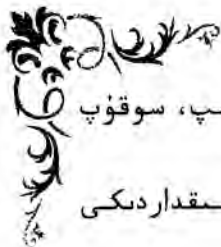 ىپ، سوقۇپ
ىقداردىكى